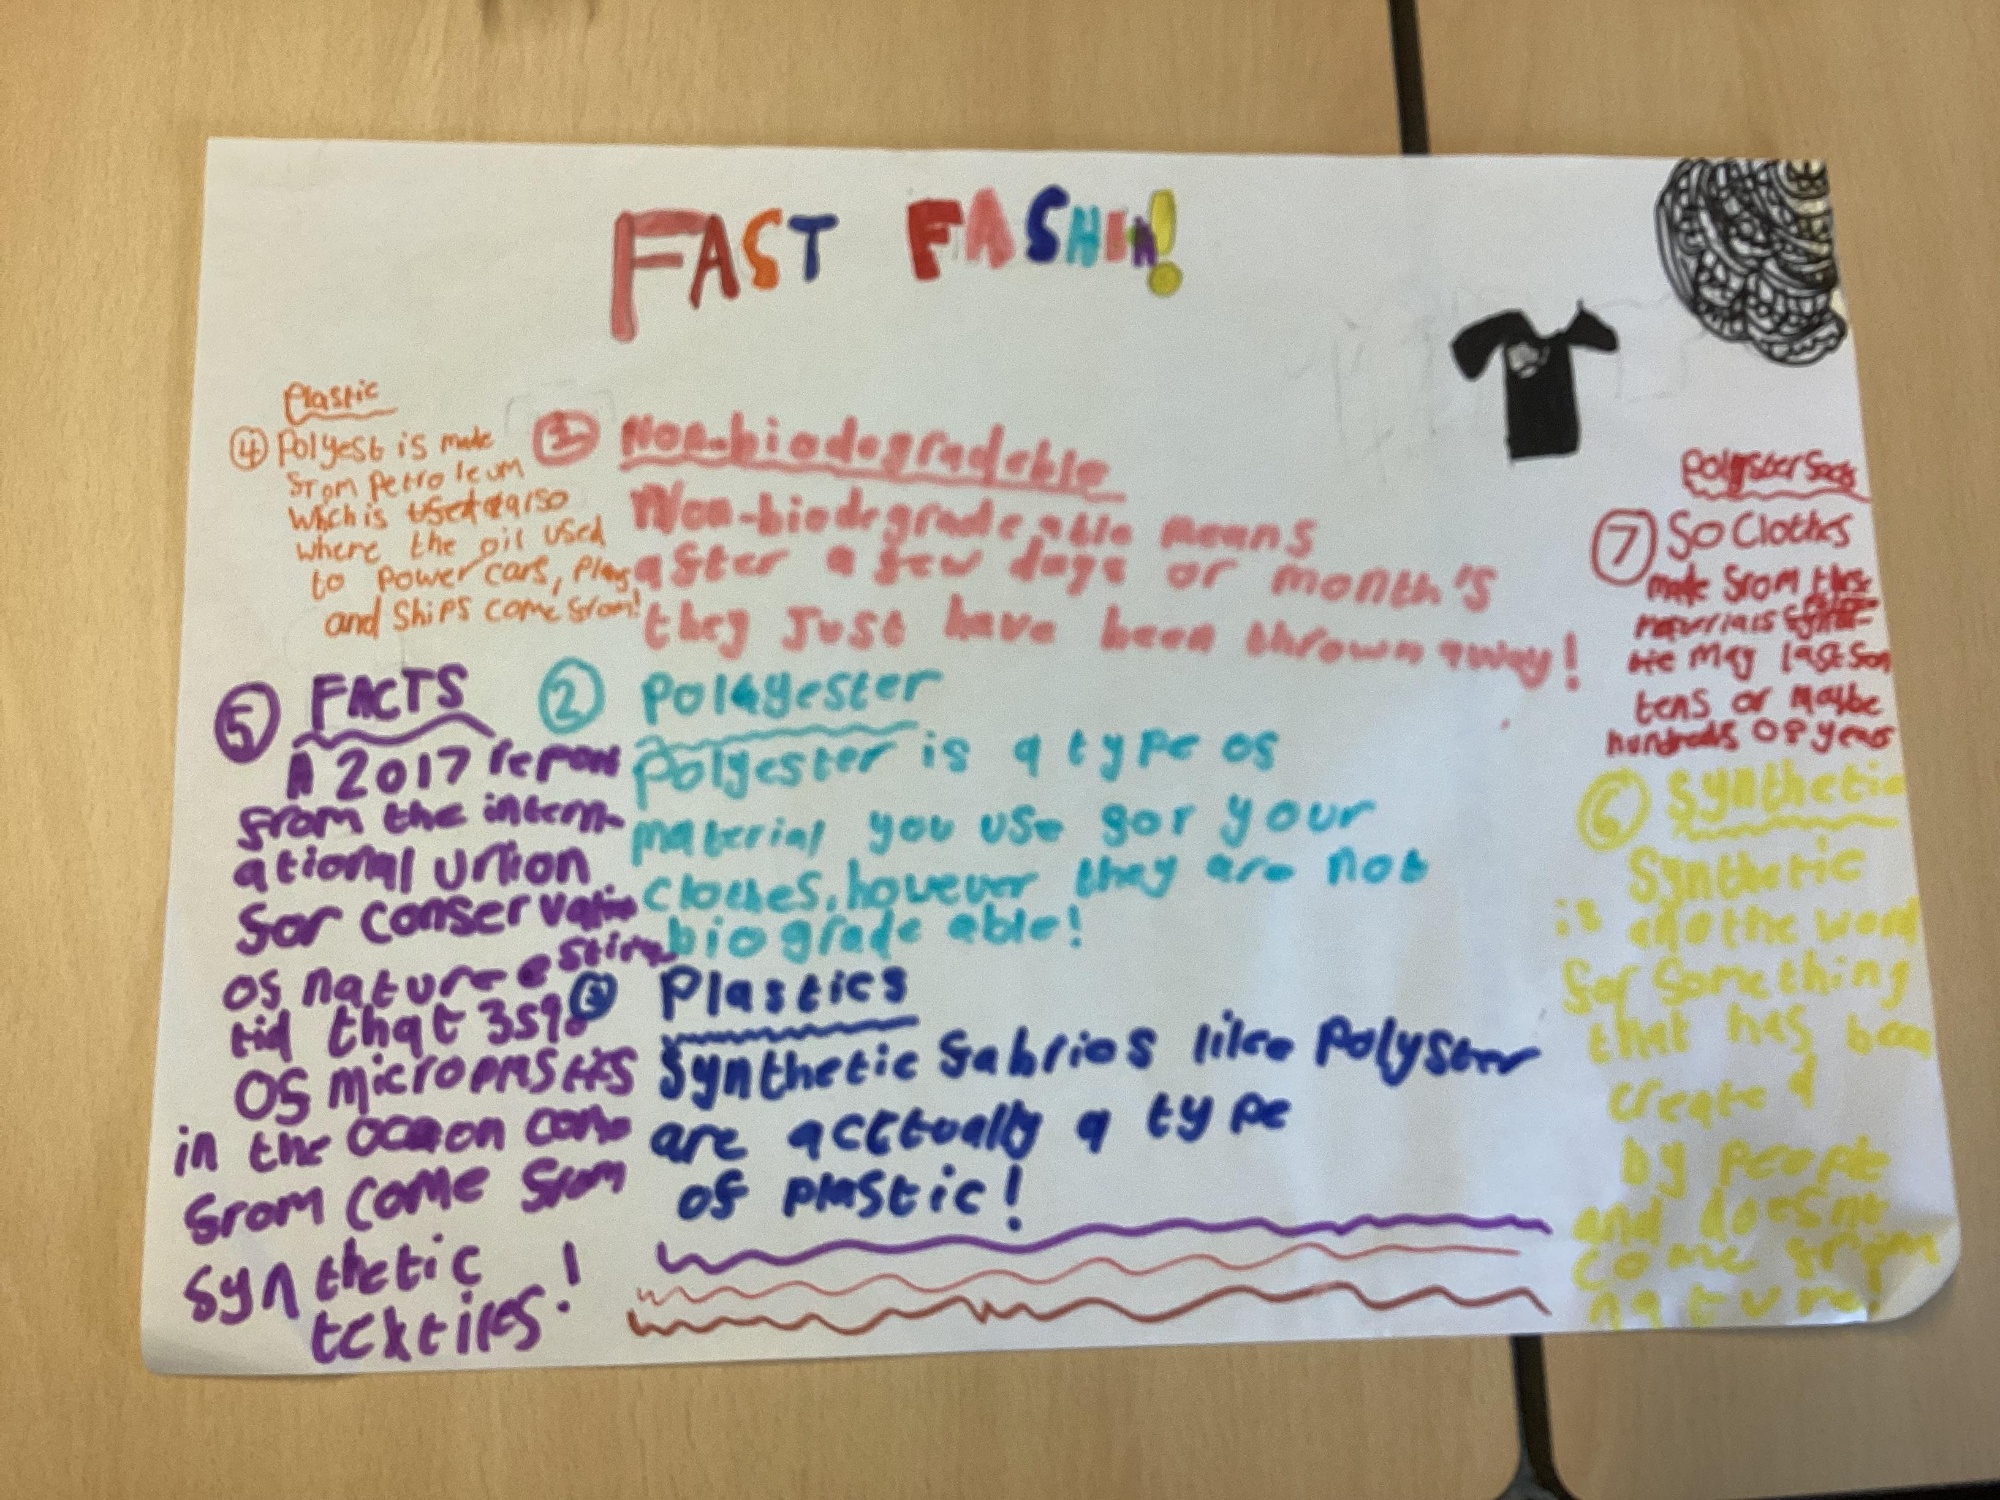 FAST FASHION!
Plastic
④ Polyest is made
from petroleum
which is used also
where the oil used
to power cars, plans
and ships come from!
① Non-biodegradable
Non-biodegradeable means
after a few days or month's
they Just have been thrown away!
② Polayester
Polyester is a type of
material you use for your
clothes, however they are not
biograde able!
③ Plastics
Synthetic fabrics like Polyster
are acctually a type
of plastic!
⑤ FACTS
A 2017 report
from the intern-
ational union
for conservation
of nature estima
tid that 35%
of micropastics
in the ocaon come
from come from
synthetic
textiles!
Polyster facts
⑦ So Clothes
made from these
materials
may last for
tens or maybe
hundreds of years
⑥ Synthetic
Synthetic
is anothe word
for something
that has been
created
by people
and doesnt
come from
nature!